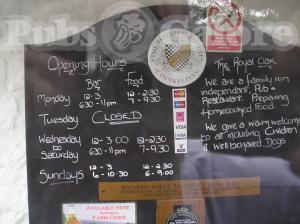 Pubs Galore
Opening Hours
Bar Food
Monday 12-3 12-2.30
6.30-11pm 7-9.30
Tuesday CLOSED
Wednesday 12-3.00 12-2.30
to
Saturday 6.30-11pm 7-9.30
Sundays 12-3 12-2.30
6-10.30 6-9.00
The Royal Oak
We are a family run
independent, Pub &
Restaurant. Preparing
Homecooked Food.
We give a warm welcome
to all including Children
& well behaved Dogs.
VISA
VISA
AVAILABLE HERE
FARM CIDER